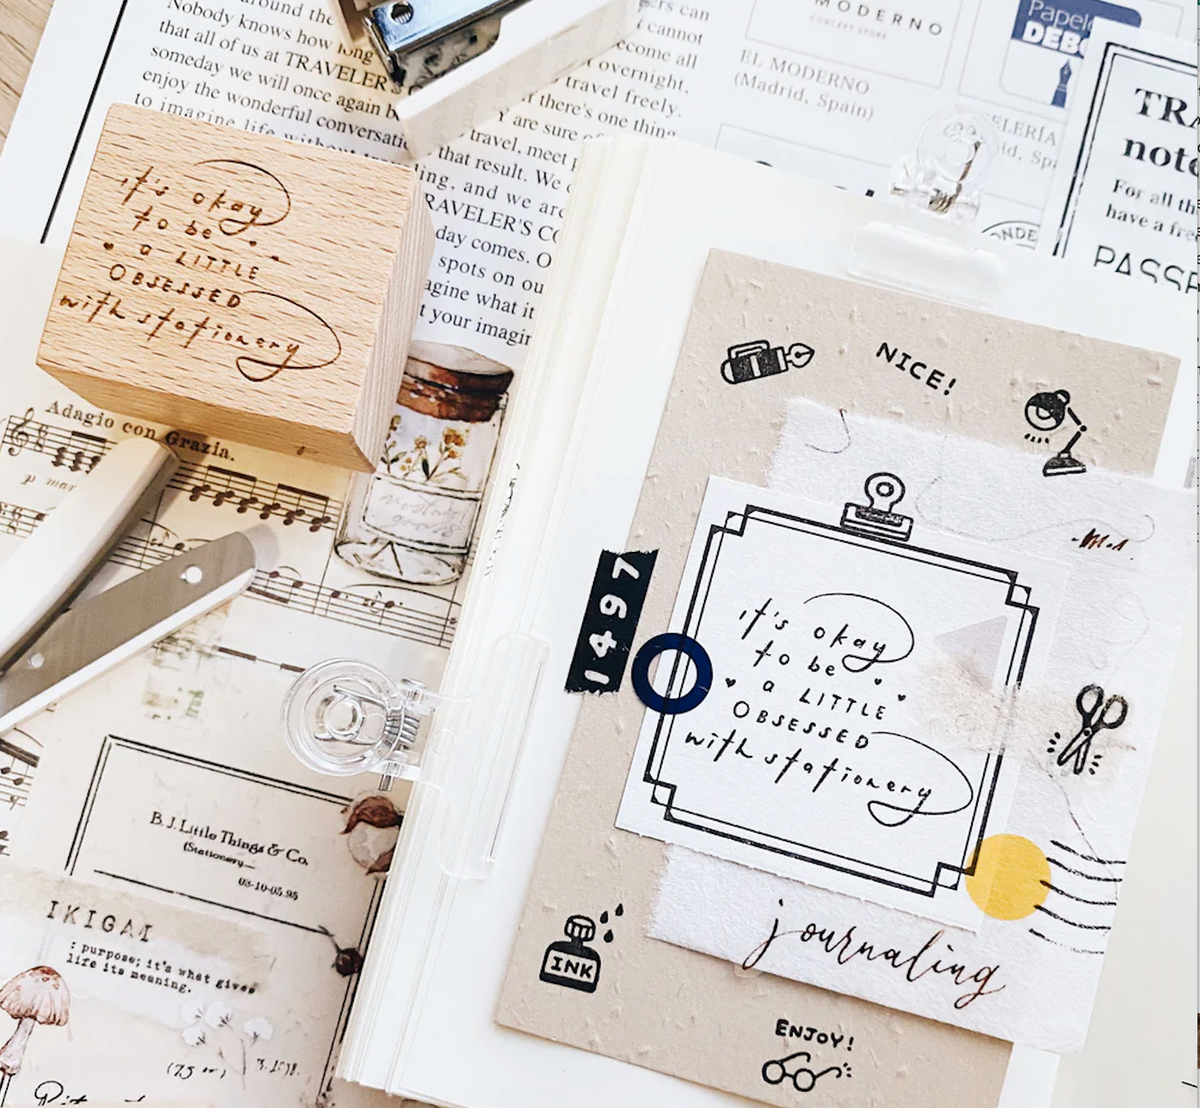 around the
Nobody knows how long
that all of us at TRAVELER'S
someday we will once again b
enjoy the wonderful conversatio
to imagine life without
ers can
cannot
ecome all
overnight,
travel freely.
if there's one thing
are sure o
travel, meet p
that result. We
ling, and we are
TRAVELER'S CO
day comes. O
spots on ou
agine what it
t your imagin
MODERNO
CONCEPT STORE
EL MODERNO
(Madrid, Spain)
Papele
DEBO
ELERÍA
id, Spa
ONDE
TRA
note
For all th
have a free
PASSE
it's okay
to be
a LITTLE
OBSESSED
with stationery
Adagio con Grazia.
p
mustard
grass
B.J. Little Things & Co.
(Stationery
03-10-05.95
IKIGAI
: purpose; it's what gives
life its meaning.
NICE!
1497
it's okay
to be
a LITTLE
OBSESSED
with stationery
journaling
INK
ENJOY!